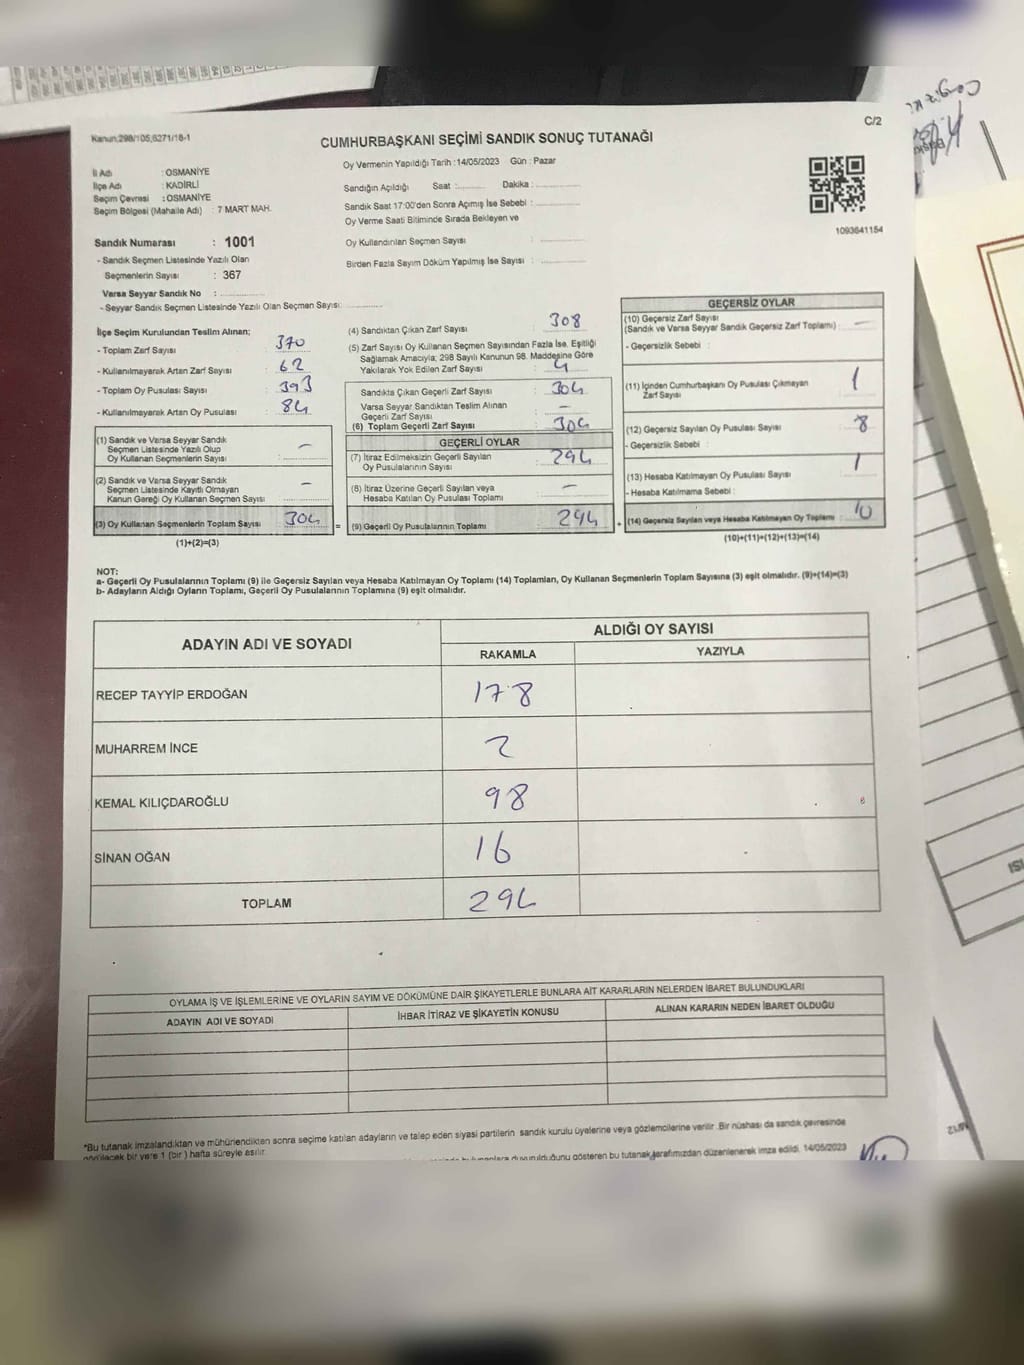 Kanun:298/105,6271/18-1
C/2
CUMHURBAŞKANI SEÇİMİ SANDIK SONUÇ TUTANAĞI
İl Adı : OSMANİYE
İlçe Adı : KADİRLİ
Seçim Çevresi : OSMANİYE
Seçim Bölgesi (Mahalle Adı) : 7 MART MAH.
Sandık Numarası : 1001
- Sandık Seçmen Listesinde Yazılı Olan
Seçmenlerin Sayısı : 367
Varsa Seyyar Sandık No :
- Seyyar Sandık Seçmen Listesinde Yazılı Olan Seçmen Sayısı:
Oy Vermenin Yapıldığı Tarih :14/05/2023 Gün : Pazar
Sandığın Açıldığı Saat : Dakika :
Sandık Saat 17:00'den Sonra Açımış İse Sebebi :
Oy Verme Saati Bitiminde Sırada Bekleyen ve
Oy Kullandırılan Seçmen Sayısı :
Birden Fazla Sayım Döküm Yapılmış İse Sayısı :
1093641154
İlçe Seçim Kurulundan Teslim Alınan;
- Toplam Zarf Sayısı : 370
- Kullanılmayarak Artan Zarf Sayısı : 62
- Toplam Oy Pusulası Sayısı : 393
- Kullanılmayarak Artan Oy Pusulası : 84
(1) Sandık ve Varsa Seyyar Sandık
Seçmen Listesinde Yazılı Olup
Oy Kullanan Seçmenlerin Sayısı : –
(2) Sandık ve Varsa Seyyar Sandık
Seçmen Listesinde Kayıtlı Olmayan
Kanun Gereği Oy Kullanan Seçmen Sayısı –
(3) Oy Kullanan Seçmenlerin Toplam Sayısı : 304 =
(1)+(2)=(3)
(4) Sandıktan Çıkan Zarf Sayısı : 308
(5) Zarf Sayısı Oy Kullanan Seçmen Sayısından Fazla İse, Eşitliği
Sağlamak Amacıyla; 298 Sayılı Kanunun 98. Maddesine Göre
Yakılarak Yok Edilen Zarf Sayısı : 4
Sandıkta Çıkan Geçerli Zarf Sayısı : 304
Varsa Seyyar Sandıktan Teslim Alınan
Geçerli Zarf Sayısı : –
(6) Toplam Geçerli Zarf Sayısı : 304
GEÇERLİ OYLAR
(7) İtiraz Edilmeksizin Geçerli Sayılan
Oy Pusulalarının Sayısı : 294
(8) İtiraz Üzerine Geçerli Sayılan veya
Hesaba Katılan Oy Pusulası Toplamı : –
(9) Geçerli Oy Pusulalarının Toplamı : 294 +
GEÇERSİZ OYLAR
(10) Geçersiz Zarf Sayısı
(Sandık ve Varsa Seyyar Sandık Geçersiz Zarf Toplamı) : –
- Geçersizlik Sebebi :
(11) İçinden Cumhurbaşkanı Oy Pusulası Çıkmayan
Zarf Sayısı : 1
(12) Geçersiz Sayılan Oy Pusulası Sayısı : 8
- Geçersizlik Sebebi :
(13) Hesaba Katılmayan Oy Pusulası Sayısı : 1
- Hesaba Katılmama Sebebi :
(14) Geçersiz Sayılan veya Hesaba Katılmayan Oy Toplamı : 10
(10)+(11)+(12)+(13)=(14)
NOT:
a- Geçerli Oy Pusulalarının Toplamı (9) ile Geçersiz Sayılan veya Hesaba Katılmayan Oy Toplamı (14) Toplamları, Oy Kullanan Seçmenlerin Toplam Sayısına (3) eşit olmalıdır. (9)+(14)=(3)
b- Adayların Aldığı Oyların Toplamı, Geçerli Oy Pusulalarının Toplamına (9) eşit olmalıdır.
ADAYIN ADI VE SOYADI
ALDIĞI OY SAYISI
RAKAMLA YAZIYLA
RECEP TAYYİP ERDOĞAN 178
MUHARREM İNCE 2
KEMAL KILIÇDAROĞLU 98
SİNAN OĞAN 16
TOPLAM 294
OYLAMA İŞ VE İŞLEMLERİNE VE OYLARIN SAYIM VE DÖKÜMÜNE DAİR ŞİKAYETLERLE BUNLARA AİT KARARLARIN NELERDEN İBARET BULUNDUKLARI
ADAYIN ADI VE SOYADI İHBAR İTİRAZ VE ŞİKAYETİN KONUSU ALINAN KARARIN NEDEN İBARET OLDUĞU
*Bu tutanak imzalandıktan ve mühürlendikten sonra seçime katılan adayların ve talep eden siyasi partilerin sandık kurulu üyelerine veya gözlemcilerine verilir .Bir nüshası da sandık çevresinde
görülecek bir yere 1 (bir ) hafta süreyle asılır.
duyurulduğunu gösteren bu tutanak,tarafımızdan düzenlenerek imza edildi. 14/05/2023